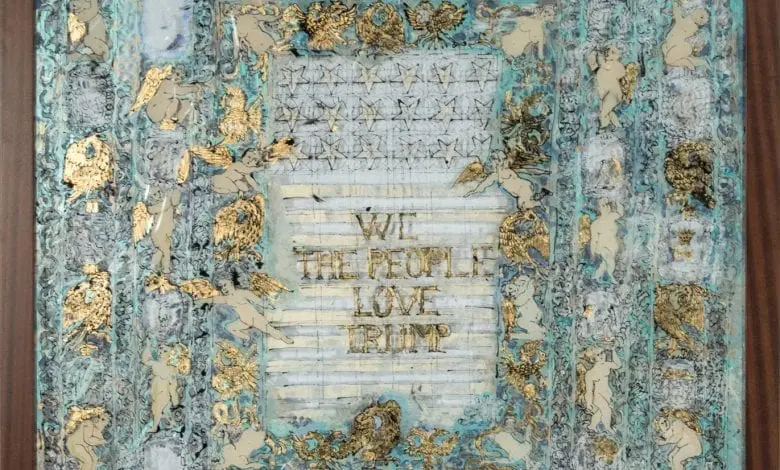 WE
THE PEOPLE
LOVE
TRUMP